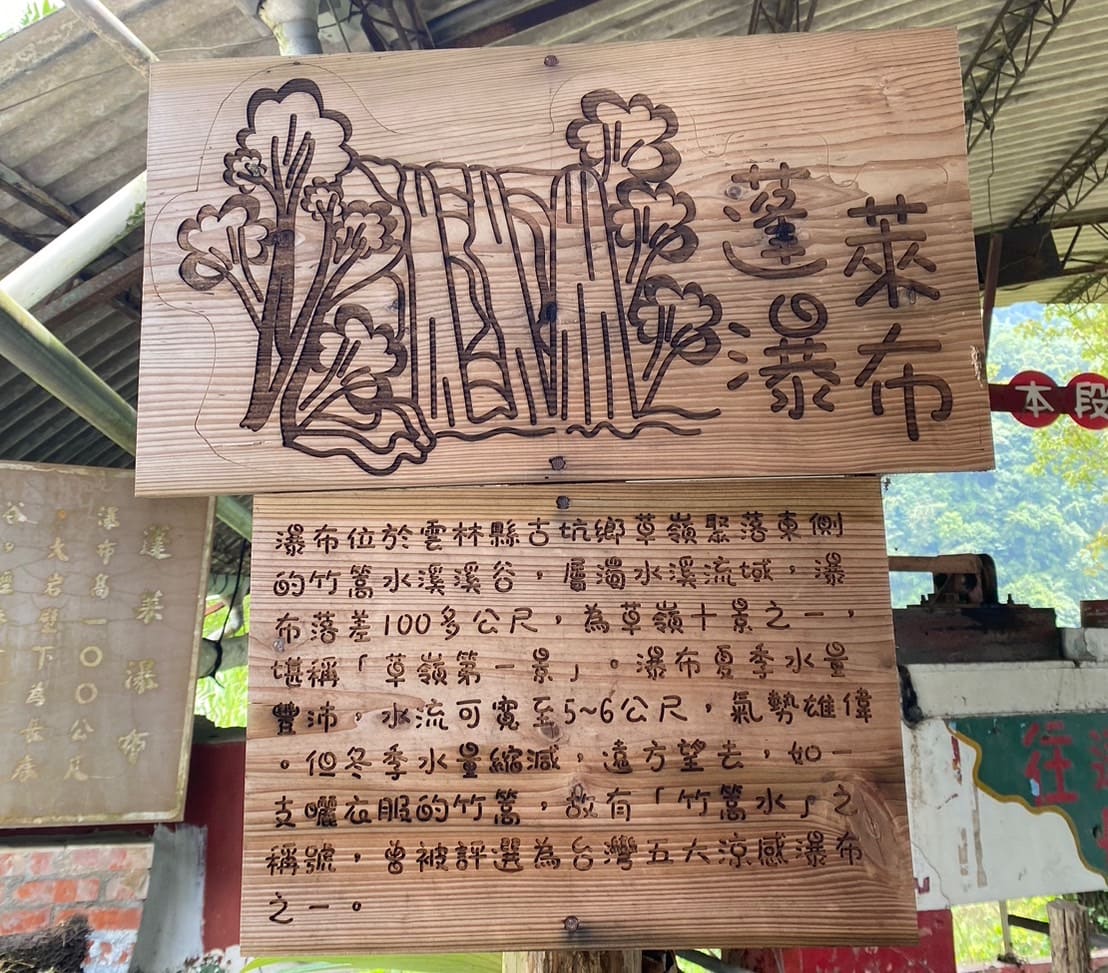 蓬萊
瀑布
瀑布位於雲林縣古坑鄉草嶺聚落東側
的竹篙水溪溪谷，屬濁水溪流域，瀑
布落差100多公尺，為草嶺十景之一，
堪稱「草嶺第一景」。瀑布夏季水量
豐沛，水流可寬至5~6公尺，氣勢雄偉
。但冬季水量縮減，遠方望去，如一
支曬衣服的竹篙，故有「竹篙水」之
稱號，曾被評選為台灣五大涼感瀑布
之一。
蓬萊瀑布
瀑布高一〇〇公尺
大岩壁下為長
谷。
本段
住